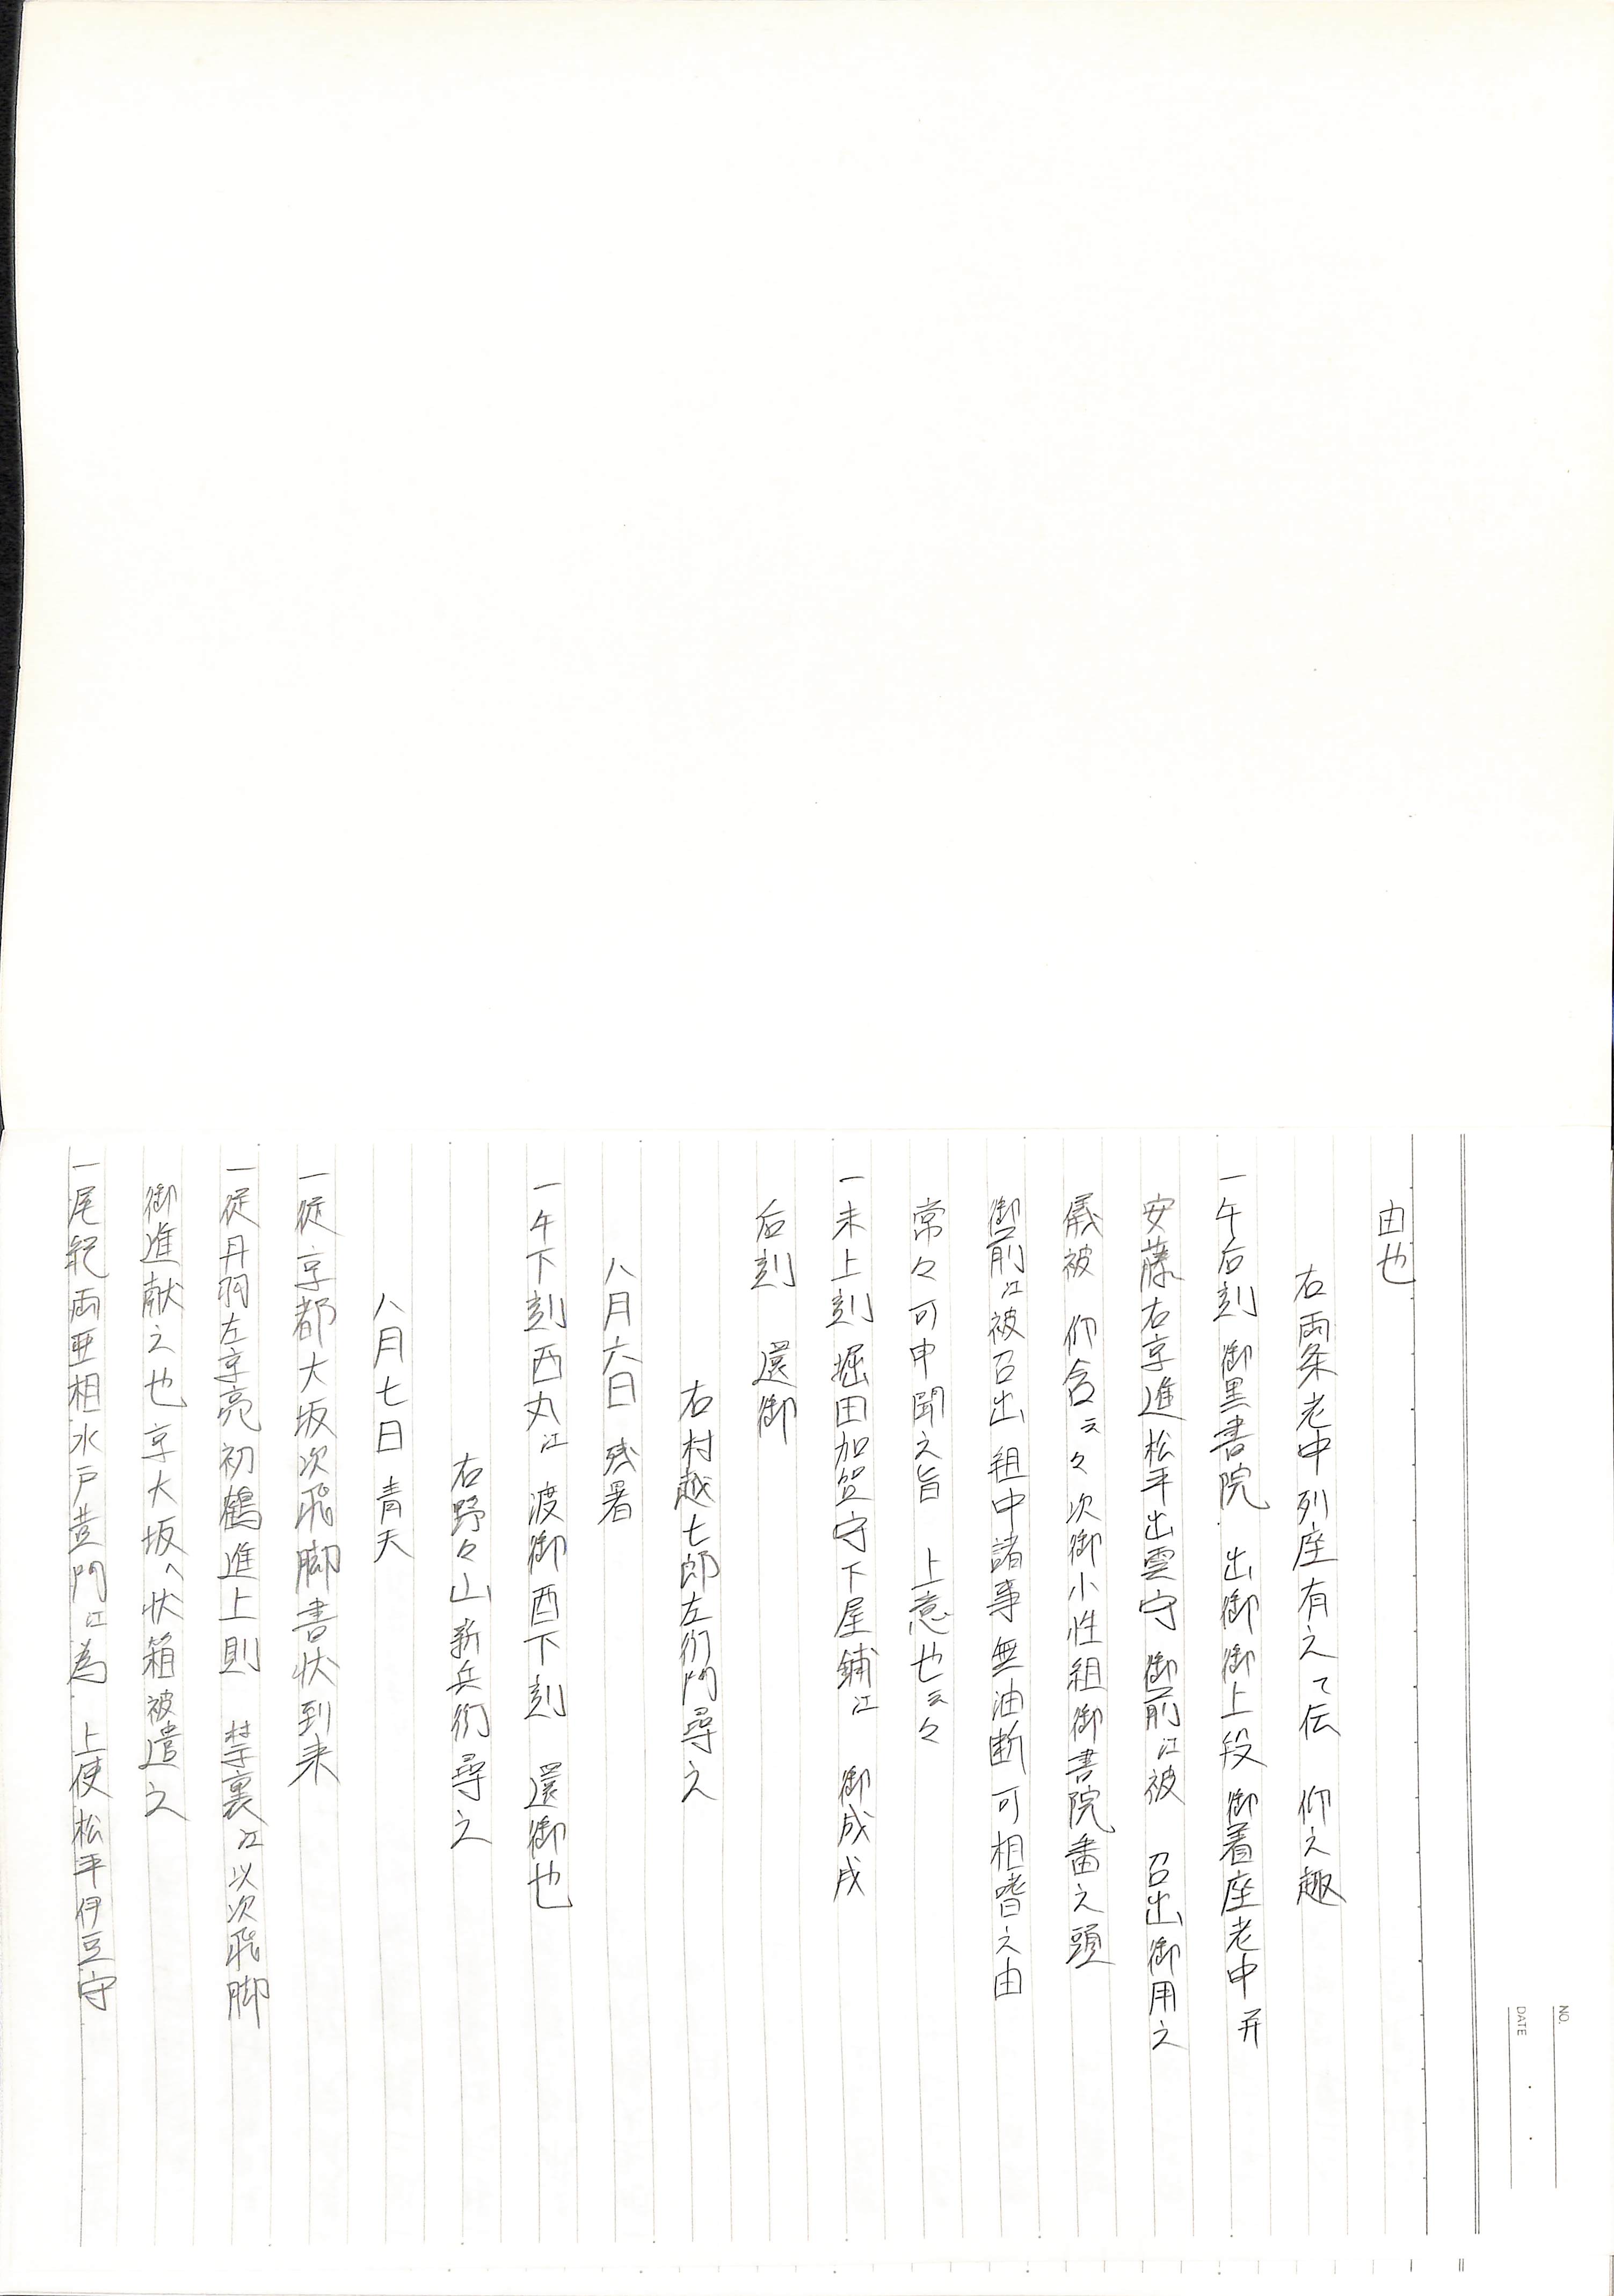 NO.
DATE
由也
右両条老中列座有之て伝　仰之趣
一午后刻　御黒書院　出御御上段　御着座老中并
安藤右京進松平出雲守　御前江被　召出御用之
儀被　仰含云々次御小性組御書院番之頭
御前江被召出　組中諸事無油断可相嗜之由
常々可申聞之旨　上意也云々
一未上刻堀田加賀守下屋鋪江　御成成
后刻　還御
右村越七郎左衛門尋之
八月六日　残暑
一午下刻西丸江　渡御酉下刻　還御也
右野々山新兵衛尋之
八月七日　青天
一従京都大坂次飛脚書状到来
一従丹羽左京亮初鶴進上則　禁裏江以次飛脚
御進献之也京大坂へ状箱被遣之
一尾紀両亜相水戸黄門江為　上使松平伊豆守